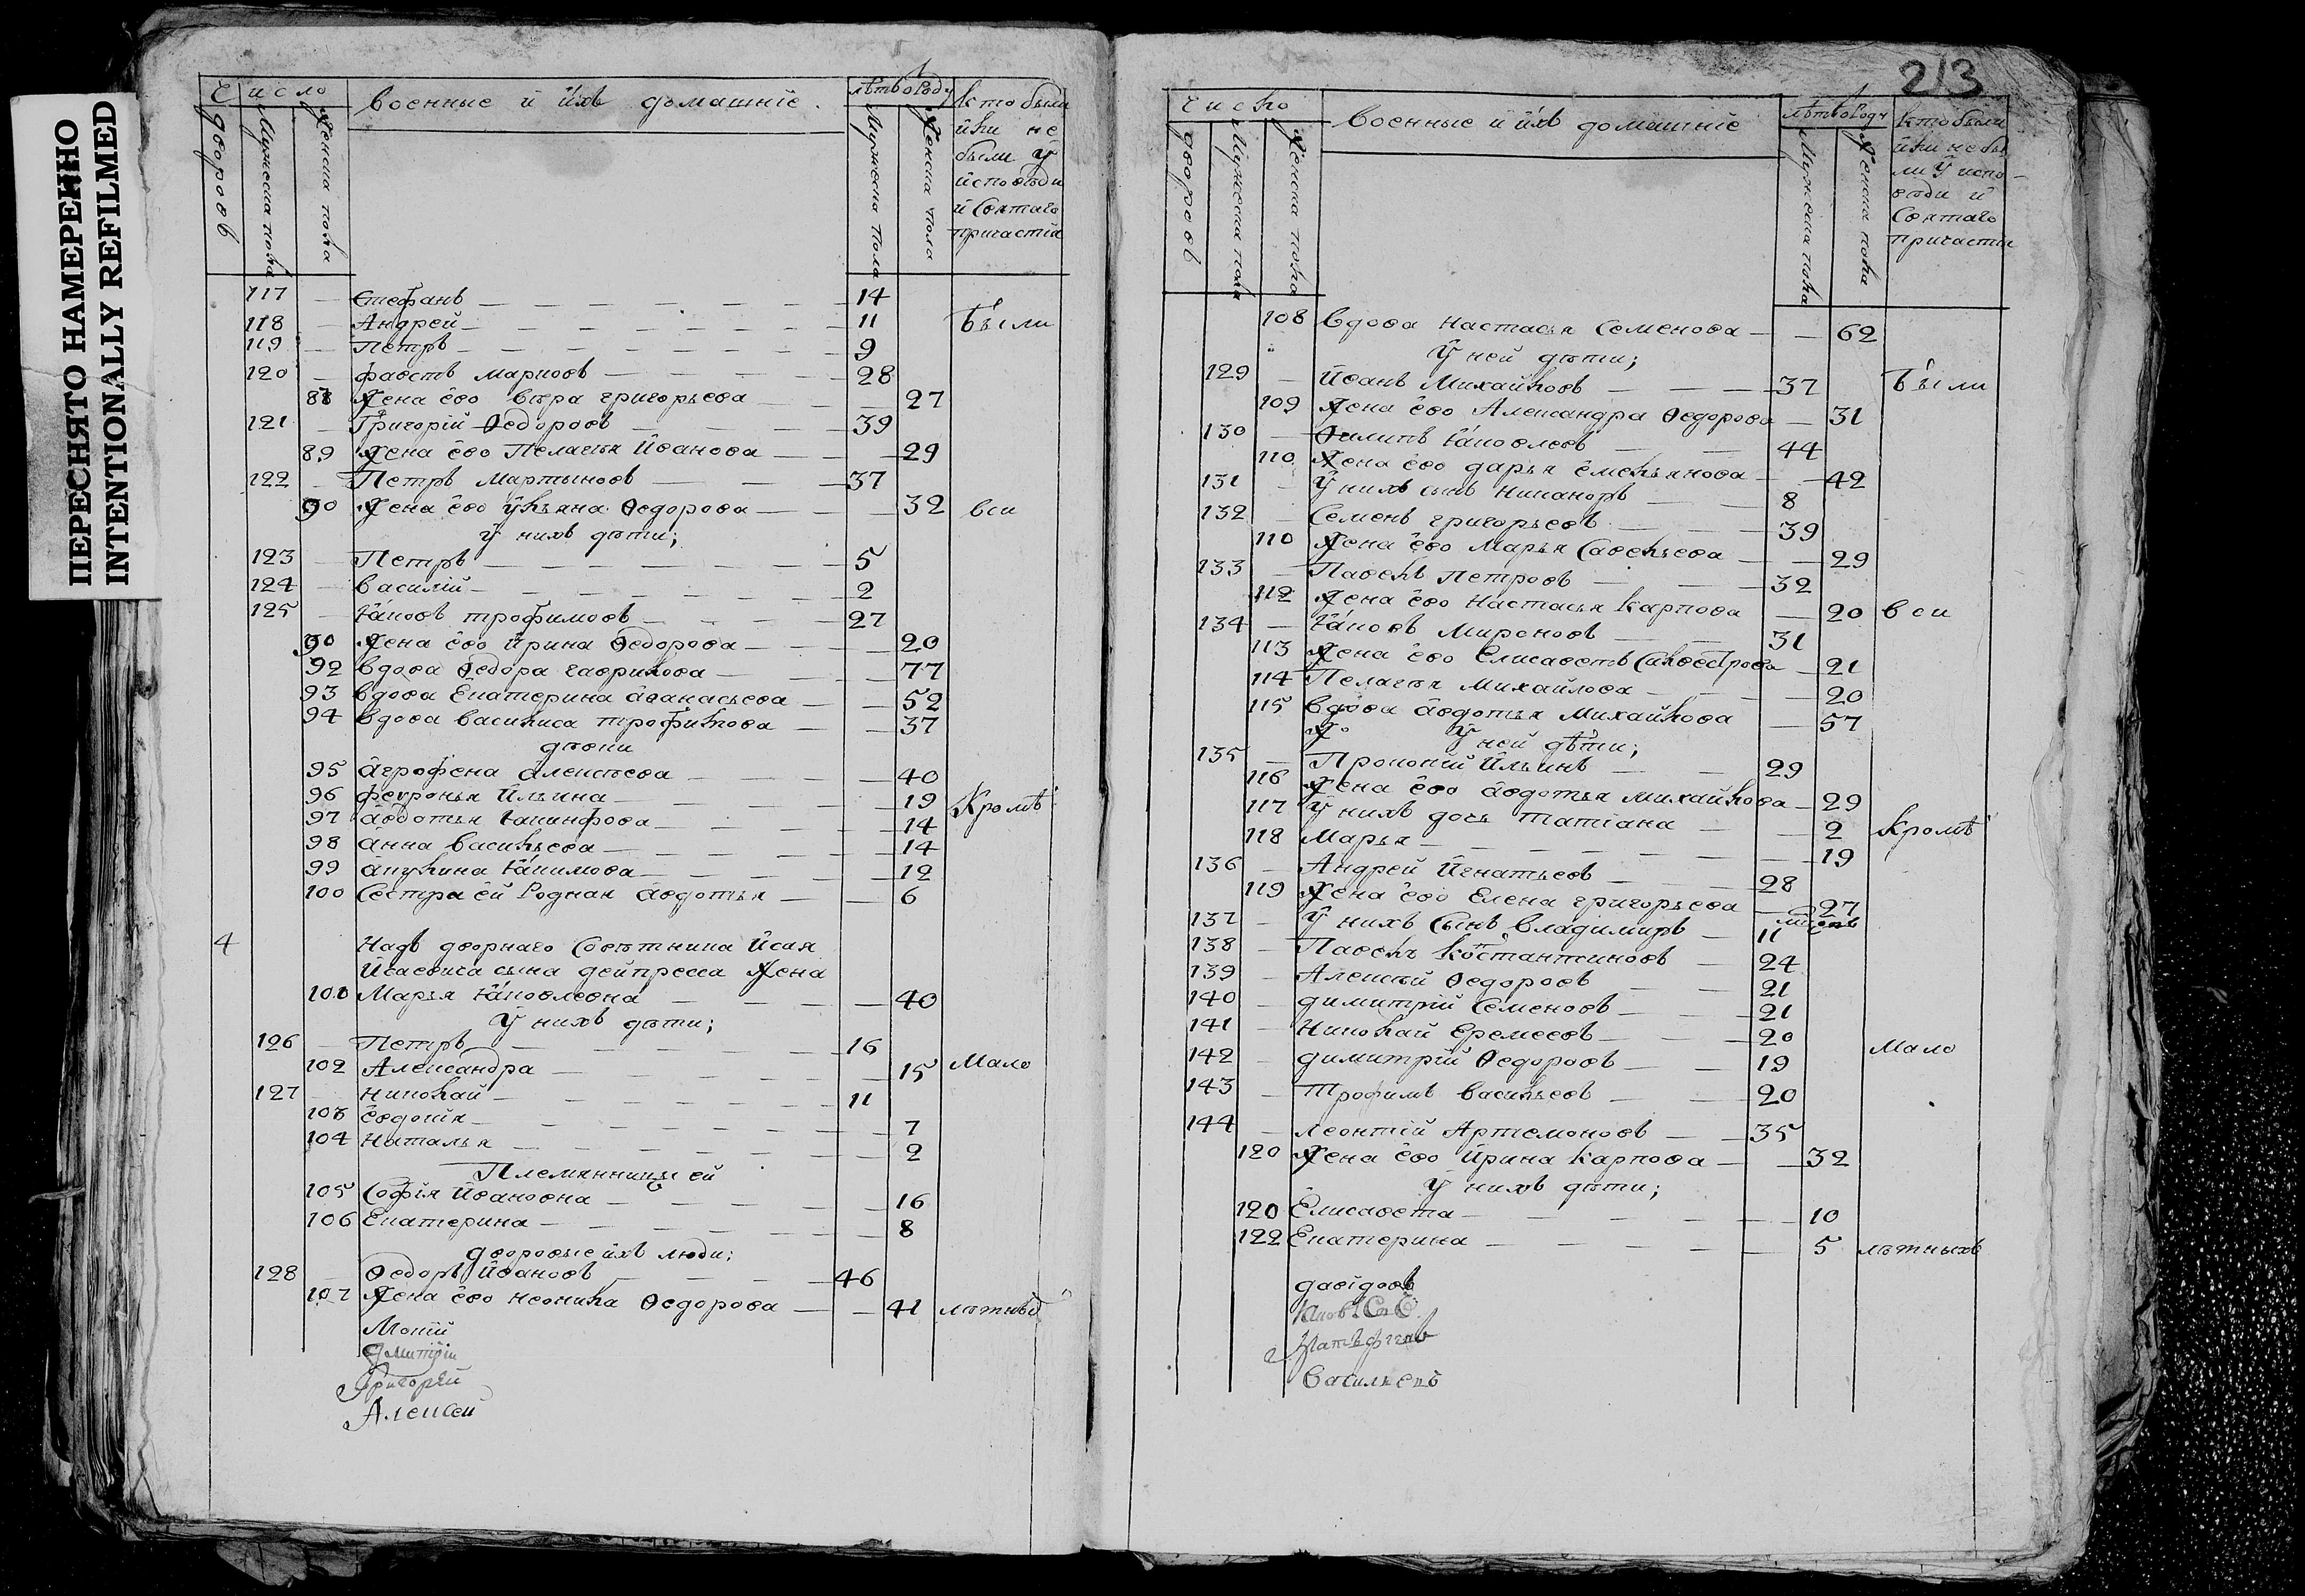 ПЕРЕСНЯТО НАМЕРЕННО
INTENTIONALLY REFILMED
Число военные и ихъ домашніе. лѣтъ отъ роду Кто были
или не
были у
исповѣди
и Святаго
причастія
дворовъ Мужеска пола Женска пола Мужеска пола Женска пола
117 — Стефанъ — 14
118 — Андрей — 11 были
119 — Петръ — 9
120 — фавстъ марковъ — 28
88 Жена ево вѣра григорьева — 27
121 — Григорій Ѳедоровъ — 39
89 Жена ево Пелагѣя Иванова — 29
122 — Петръ мартыновъ — 37
90 Жена ево ульяна Ѳедорова — 32 вси
у нихъ дѣти;
123 — Петръ — 5
124 — василій — 2
125 — Іаковъ трофимовъ — 27
90 Жена ево Ирина Ѳедорова — 20
92 вдова Ѳедора гаврилова — 77
93 вдова Екатерина аѳанасьева — 52
94 вдова василиса трофимова — 37
дѣвки
95 агрофена алексѣева — 40
96 феѵронья Ильина — 19 Кромѣ
97 авдотья Іакинфова — 14
98 анна васильева — 14
99 акулина Іакимова — 12
100 Сестра ей Родная авдотья — 6
4 Надъ дворнаго Совѣтника Исая
Исаевича сына дейпресса Жена
100 Марья Іаковлевна — 40
у нихъ дѣти;
126 — Петръ — 16
102 Александра — 15 Мало
127 — Николай — 11
103 евдокія — 7
104 Наталья — 2
Племянницы ей
105 Софія Ивановна — 16
106 Екатерина — 8
дворовые ихъ люди;
128 — Ѳедоръ Ивановъ — 46
107 Жена ево неонила Ѳедорова — 41 лѣтныхъ
Мокій
Дмитрій
Григорей
Алексей
213
Число военные и ихъ домашніе лѣтъ отъ роду кто были
или не бы
ли у испо-
вѣди и
Святаго
причастия
дворовъ Мужеска пола Женска пола Мужеска пола Женска пола
108 вдова настасья Семенова — 62
у ней дѣти;
129 — Иванъ Михайловъ — 37 были
109 Жена ево Александра Ѳедорова — 31
130 — Филипъ Іаковлевъ — 44
110 Жена ево дарья емельянова — 42
131 — у нихъ сынъ никаноръ — 8
132 — Семенъ григорьевъ — 39
110 Жена ево Марья Савельева — 29
133 — Павелъ Петровъ — 32
112 Жена ево Настасья карпова — 20 вси
134 — Іаковъ Мироновъ — 31
113 Жена ево Елисаветъ Силвестрова — 21
114 Пелагѣя михайлова — 20
115 вдова авдотья Михайлова — 57
у ней дѣти;
135 — Прокопій Ильинъ — 29
116 Жена ево авдотья михайлова — 29
117 у нихъ дочь татіана — 2 Кромѣ
118 Марья — 19
136 — Андрей Игнатьевъ — 28
119 Жена ево Елена григорьева — 27
137 — у нихъ Сынъ владимиръ — 11
138 — Павелъ Костантиновъ — 24
139 — Алексѣй Ѳедоровъ — 21
140 — димитрій Семеновъ — 21
141 — Николай Еремеевъ — 20
142 — димитрій Ѳедоровъ — 19 Мало
143 — Трофимъ васильевъ — 20
144 — леонтій Артемоновъ — 35
120 Жена ево Ирина карпова — 32
у нихъ дѣти;
120 Елисавета — 10
122 Екатерина — 5 лѣтныхъ
давідовъ
васильевъ